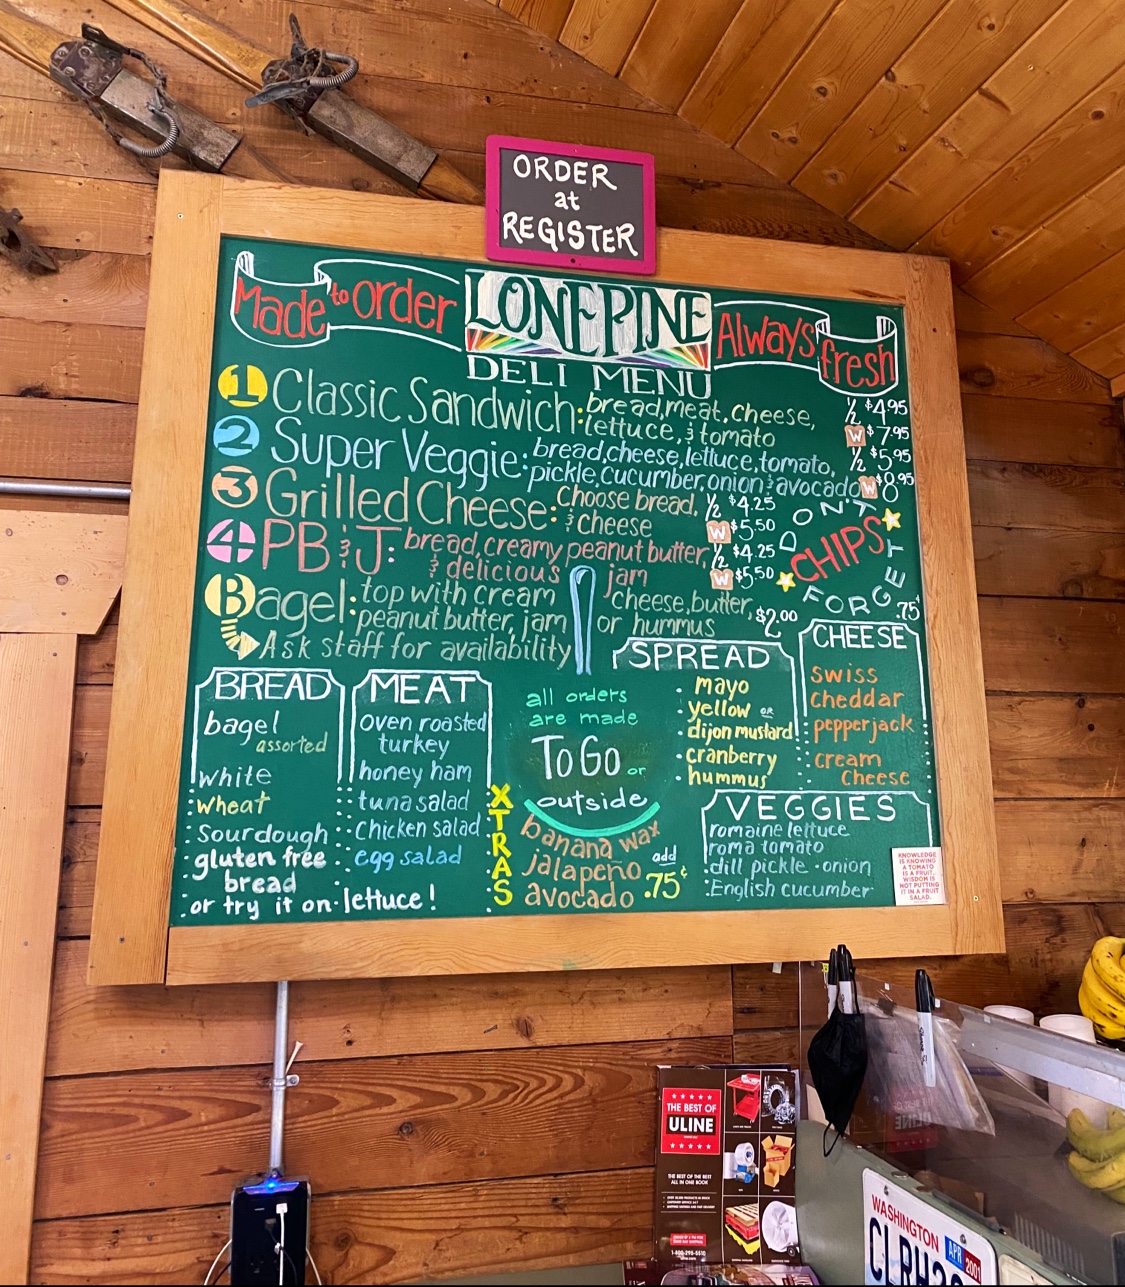 ORDER
at
REGISTER
Made to order LONE PINE Always fresh
DELI MENU
1 Classic Sandwich: bread, meat, cheese, ½ $4.95
lettuce, & tomato W $7.95
2 Super Veggie: bread, cheese, lettuce, tomato, ½ $5.95
pickle, cucumber, onion & avocado W $8.95
3 Grilled Cheese: Choose bread, ½ $4.25
& cheese W $5.50
4 PB & J: bread, creamy peanut butter, ½ $4.25
& delicious jam W $5.50
DON'T
CHIPS
FORGET
.75¢
Bagel: top with cream cheese, butter, $2.00
peanut butter, jam or hummus
Ask staff for availability
BREAD
bagel
assorted
white
wheat
sourdough
gluten free
bread
or try it on lettuce!
MEAT
oven roasted
turkey
honey ham
tuna salad
chicken salad
egg salad
all orders
are made
To Go or
outside
XTRAS
banana wax
jalapeño
avocado
add
.75¢
SPREAD
mayo
yellow or
dijon mustard
cranberry
hummus
CHEESE
swiss
cheddar
pepperjack
cream
cheese
VEGGIES
romaine lettuce
roma tomato
dill pickle · onion
English cucumber
KNOWLEDGE
IS KNOWING
A TOMATO
IS A FRUIT.
WISDOM IS
NOT PUTTING
IT IN A FRUIT
SALAD.
THE BEST OF
ULINE
THE BEST OF THE BEST
ALL IN ONE BOOK
1-800-295-5510
WASHINGTON
APR 2001